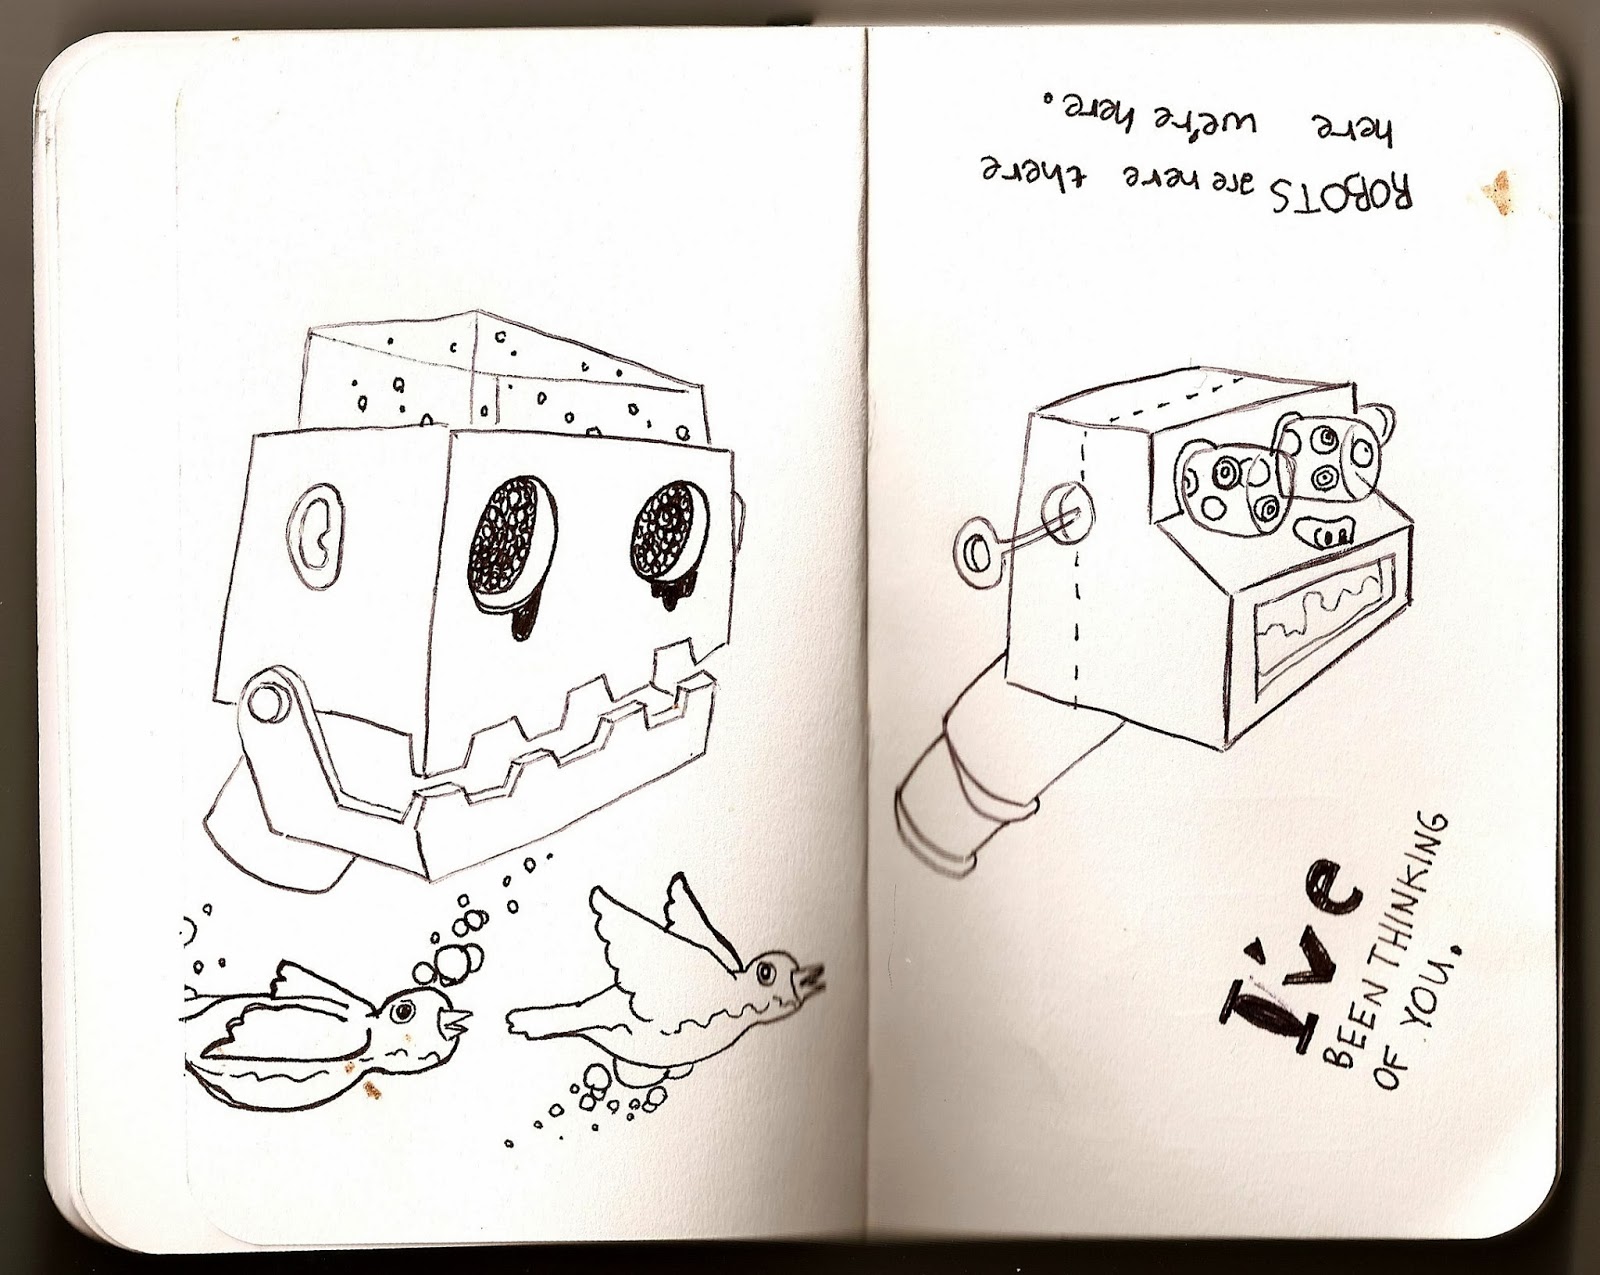 ROBOTS are here there
here we're here.
I've
BEEN THINKING
OF YOU.